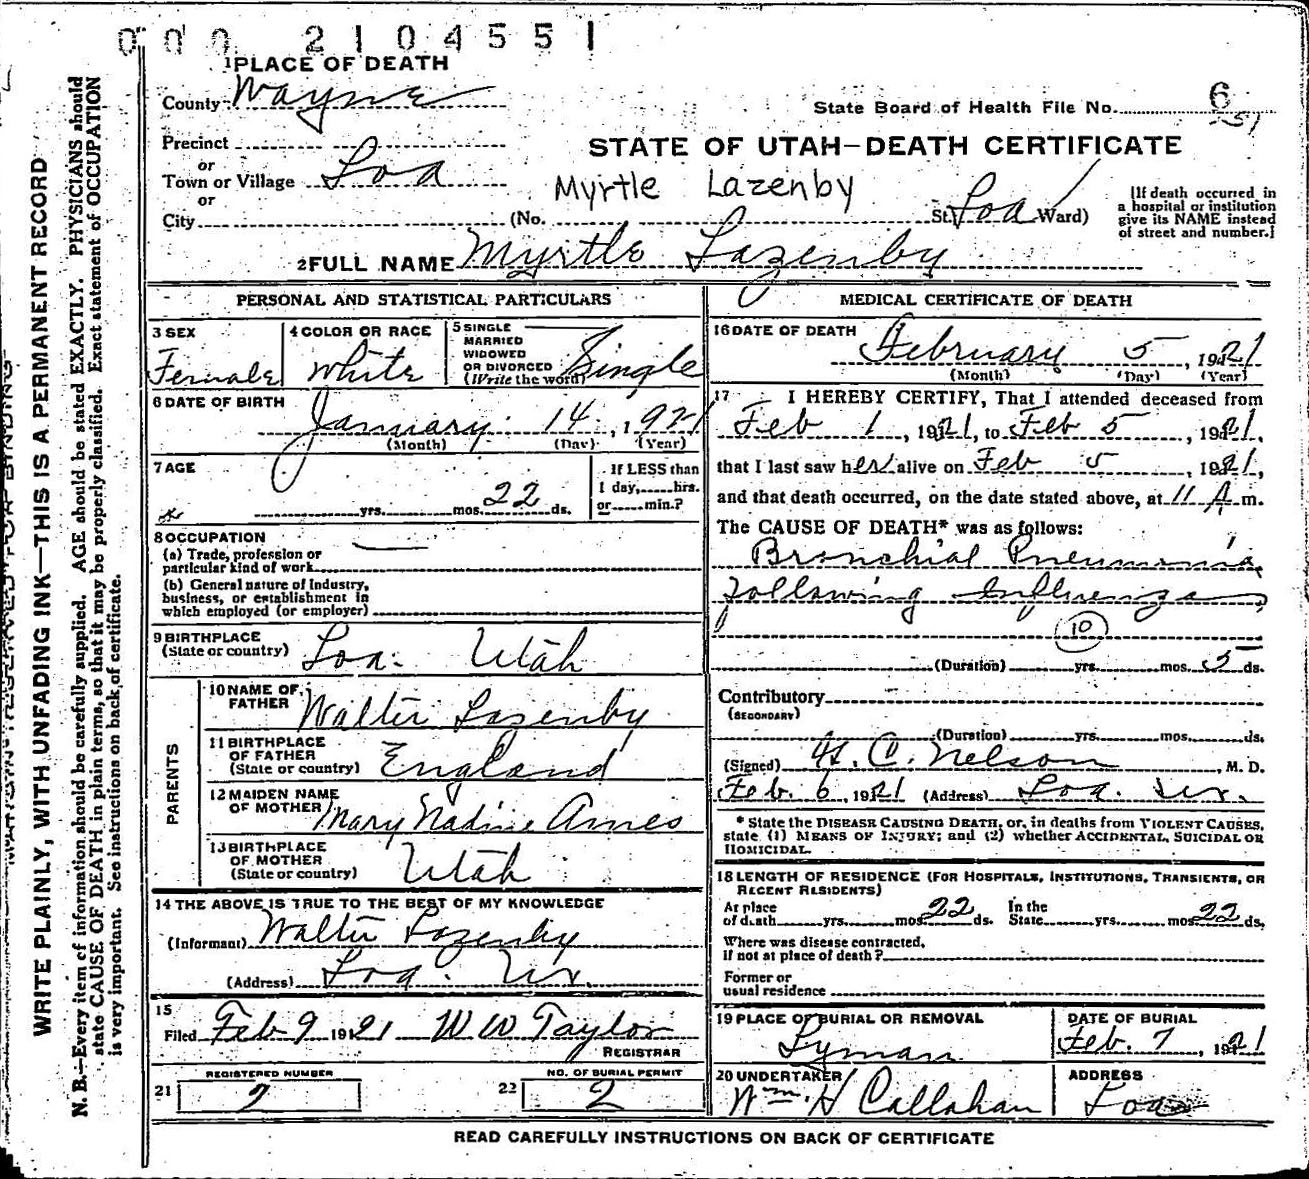 000 2104551
1 PLACE OF DEATH
County Wayne
State Board of Health File No. 6
-51
Precinct
or
Town or Village Loa
or
City
STATE OF UTAH—DEATH CERTIFICATE
Myrtle Lazenby
(No. St. Loa Ward)
[If death occurred in
a hospital or institution
give its NAME instead
of street and number.]
2 FULL NAME Myrtle Lazenby
PERSONAL AND STATISTICAL PARTICULARS
3 SEX
Female
4 COLOR OR RACE
White
5 SINGLE
MARRIED
WIDOWED
OR DIVORCED
(Write the word)
Single
6 DATE OF BIRTH
January 14, 1921
(Month) (Day) (Year)
7 AGE
yrs. mos. 22 ds.
If LESS than
1 day, hrs.
or min.?
8 OCCUPATION
(a) Trade, profession or
particular kind of work
(b) General nature of Industry,
business, or establishment in
which employed (or employer)
9 BIRTHPLACE
(State or country) Loa. Utah
PARENTS
10 NAME OF
FATHER Walter Lazenby
11 BIRTHPLACE
OF FATHER
(State or country) England
12 MAIDEN NAME
OF MOTHER Mary Nadine Ames
13 BIRTHPLACE
OF MOTHER
(State or country) Utah
14 THE ABOVE IS TRUE TO THE BEST OF MY KNOWLEDGE
(Informant) Walter Lazenby
(Address) Loa. Ut.
15
Filed Feb 9 1921 W W Taylor
REGISTRAR
REGISTERED NUMBER
21 2
NO. OF BURIAL PERMIT
22 2
MEDICAL CERTIFICATE OF DEATH
16 DATE OF DEATH
February 5, 1921
(Month) (Day) (Year)
17 I HEREBY CERTIFY, That I attended deceased from
Feb 1, 1921, to Feb 5, 1921,
that I last saw her alive on Feb 5, 1921,
and that death occurred, on the date stated above, at 11 A m.
The CAUSE OF DEATH* was as follows:
Bronchial Pneumonia,
following Influenza
10
(Duration) yrs. mos. 5 ds.
Contributory
(SECONDARY)
(Duration) yrs. mos. ds.
(Signed) H. C. Nelson, M. D.
Feb. 6, 1921 (Address) Loa. Ut.
* State the DISEASE CAUSING DEATH, or, in deaths from VIOLENT CAUSES,
state (1) MEANS OF INJURY; and (2) whether ACCIDENTAL, SUICIDAL OR
HOMICIDAL.
18 LENGTH OF RESIDENCE (FOR HOSPITALS, INSTITUTIONS, TRANSIENTS, OR
RECENT RESIDENTS)
At place
of death yrs. mos. 22 ds. In the
State yrs. mos. 22 ds.
Where was disease contracted,
if not at place of death?
Former or
usual residence
19 PLACE OF BURIAL OR REMOVAL
Lyman
DATE OF BURIAL
Feb. 7, 1921
20 UNDERTAKER
Wm. H Callahan
ADDRESS
Loa
READ CAREFULLY INSTRUCTIONS ON BACK OF CERTIFICATE
MARGIN RESERVED FOR BINDING
WRITE PLAINLY, WITH UNFADING INK—THIS IS A PERMANENT RECORD
N. B.—Every item of information should be carefully supplied. AGE should be stated EXACTLY. PHYSICIANS should
state CAUSE OF DEATH in plain terms, so that it may be properly classified. Exact statement of OCCUPATION
is very important. See instructions on back of certificate.